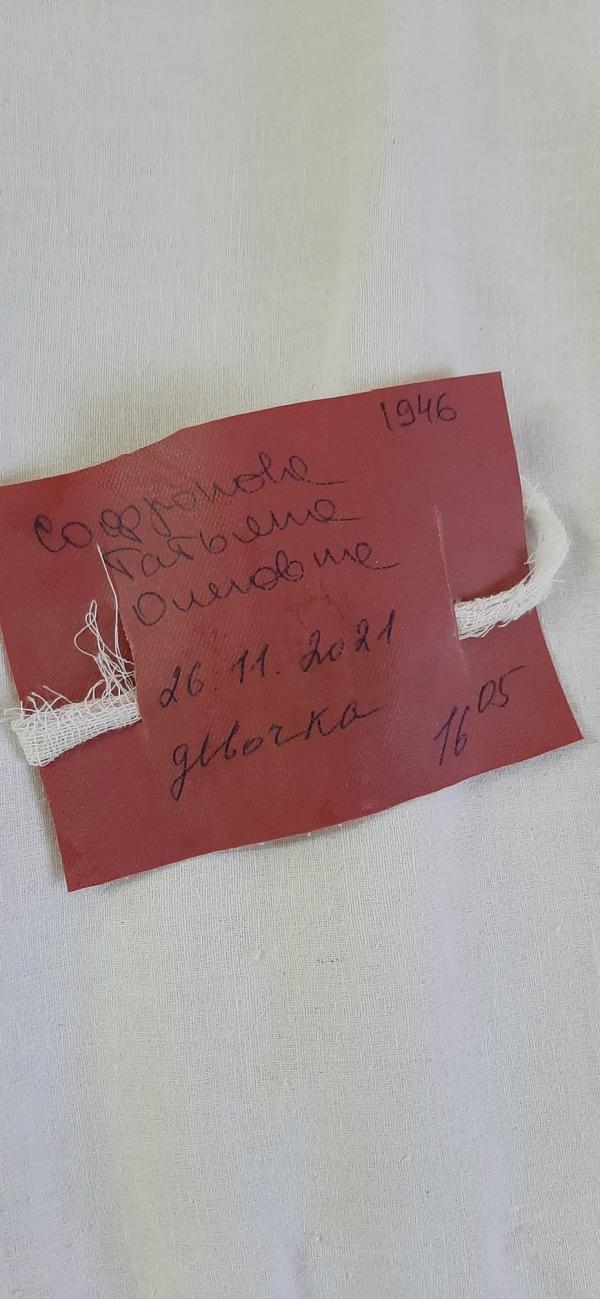 1946
Софронова
Татьяна
Олеговна
26.11.2021
девочка
16 05